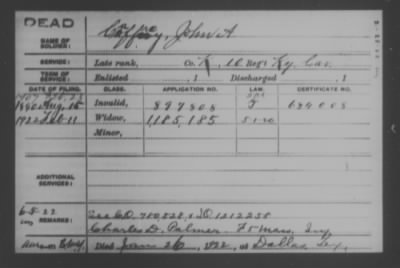 DEAD
NAME OF SOLDIER: Caffrey, John A
SERVICE: Late rank, Co. K, 10 Reg't Ky. Cav.
TERM OF SERVICE: Enlisted , 1 Discharged , 1
DATE OF FILING. CLASS. APPLICATION NO. LAW. CERTIFICATE NO.
1890 Aug. 15 Invalid, 897808 684008
1922 Feb 11 Widow, 1,185,185
Minor,
ADDITIONAL SERVICES:
REMARKS: See CO 780,528, & XO 1212258
Charles D. Palmer F 5 Mass. Inf.
Died Jan 26, 1922, at Dallas, Tex.